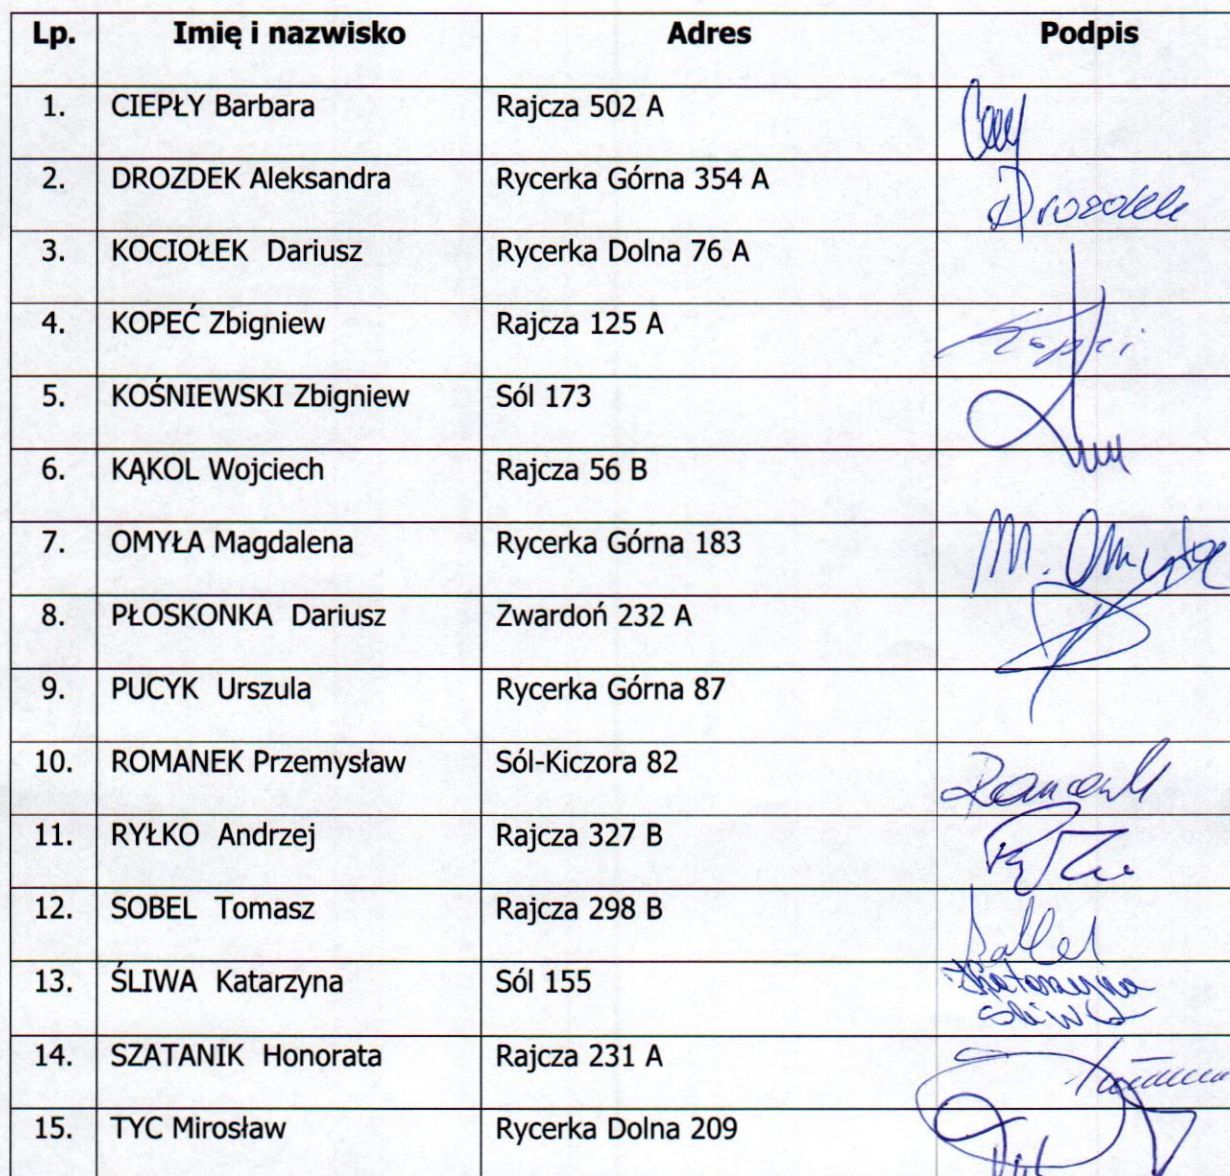 Lp. Imię i nazwisko Adres Podpis
1. CIEPŁY Barbara Rajcza 502 A
2. DROZDEK Aleksandra Rycerka Górna 354 A Drozdek
3. KOCIOŁEK Dariusz Rycerka Dolna 76 A
4. KOPEĆ Zbigniew Rajcza 125 A
5. KOŚNIEWSKI Zbigniew Sól 173
6. KĄKOL Wojciech Rajcza 56 B
7. OMYŁA Magdalena Rycerka Górna 183 M. Omyła
8. PŁOSKONKA Dariusz Zwardoń 232 A
9. PUCYK Urszula Rycerka Górna 87
10. ROMANEK Przemysław Sól-Kiczora 82 Romanek
11. RYŁKO Andrzej Rajcza 327 B
12. SOBEL Tomasz Rajcza 298 B
13. ŚLIWA Katarzyna Sól 155 Katarzyna
Śliwa
14. SZATANIK Honorata Rajcza 231 A
15. TYC Mirosław Rycerka Dolna 209